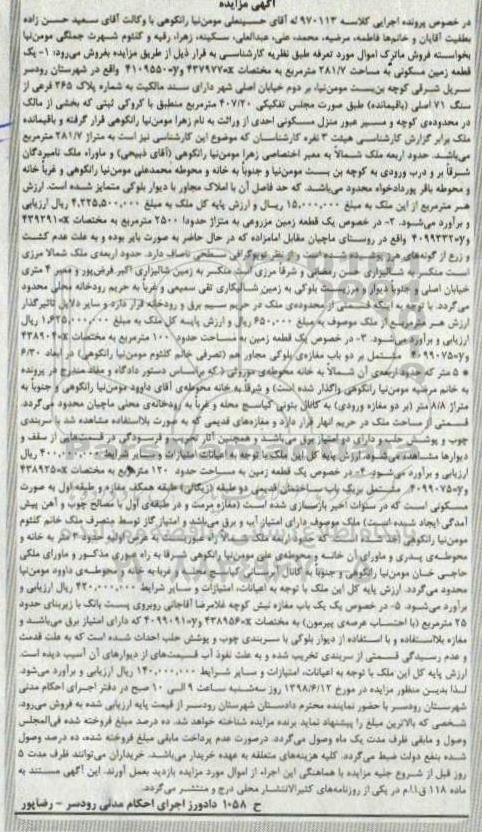 آگهی مزایده
در خصوص پرونده اجرایی کلاسه ۹۷۰۱۱۳ له آقای حسینعلی مومن‌نیا رانکوهی با وکالت آقای سعید حسن زاده
بطفیت آقایان و خانم‌ها فاطمه، مرضیه، محمد، علی، عبدالعلی، سکینه، زهرا، رقیه و کلثوم شهرت جملگی مومن‌نیا
بخواسته فروش ماترک اموال مورد تعرفه طبق نظریه کارشناسی به قرار ذیل از طریق مزایده بفروش می‌رود: ۱- یک
قطعه زمین مسکونی به مساحت ۲۸۱/۷ مترمربع به مختصات x=۴۳۷۹۷۷ وy=۴۱۰۹۵۵۰ واقع در شهرستان رودسر
سرپل شرقی کوچه بن‌بست مومن‌نیا، بر دوم خیابان اصلی شهر دارای سند مالکیت به شماره پلاک ۲۶۵ فرعی از
سنگ ۷۱ اصلی (باقیمانده) طبق صورت مجلس تفکیکی ۴۰۷/۲۰ مترمربع منطبق با کروکی ثبتی که بخشی از مالک
در محدوده‌ی کوچه و مسیر عبور منزل مسکونی احدی از وراثت به نام زهرا مومن‌نیا رانکوهی قرار گرفته و باقیمانده
ملک برابر گزارش کارشناسی هیئت ۳ نفره کارشناسان که موضوع این کارشناسی نیز است به متراژ ۲۸۱/۷ مترمربع
می‌باشد. حدود اربعه ملک شمالاً به معبر اختصاصی زهرا مومن‌نیا رانکوهی (آقای ذبیحی) و ماوراء ملک نامبردگان
شرقاً بر و درب ورودی به کوچه بن بست مومن‌نیا و جنوباً به خانه و محوطه محمدعلی مومن‌نیا رانکوهی و غرباً خانه
و محوطه باقر پوردادخواه محدود می‌باشند. که حد فاصل آن با املاک مجاور با دیوار بلوکی متمایز شده است. ارزش
هر مترمربع از این ملک به مبلغ ۱۵,۰۰۰,۰۰۰ ریال و ارزش پایه کل ملک به مبلغ ۴,۲۲۵,۵۰۰,۰۰۰ ریال ارزیابی
و برآورد می‌شود. ۲- در خصوص یک قطعه زمین مزروعی به متراژ حدودا ۲۵۰۰ مترمربع به مختصات x=۴۳۹۲۹۱
وy=۴۰۹۹۳۳۲ واقع در روستای ماچیان مقابل امامزاده که در حال حاضر به صورت بایر بوده و به علت عدم کشت
و زرع از گونه‌های هرز پوشیده شده است و از نظر توپوگرافی سطحی ناصاف دارد. حدود اربعه‌ی ملک شمالا مرزی
است منکسر به شالیزاری حسن رمضانی و شرقا مرزی است منکسر به زمین شالیزاری اکبر فرض‌پور و معبر ۴ متری
خیابان اصلی و جنوبا دیوار و مرزیست بلوکی به زمین شالیکاری تقی سمیعی و غرباً به حریم رودخانه محلی محدود
می‌گردد. با توجه به اینکه قسمتی از محدوده‌ی ملک در حریم سیم برق و رودخانه قرار دارد و سایر دلایل تاثیرگذار
ارزش هر مترمربع از ملک موصوف به مبلغ ۶۵۰,۰۰۰ ریال و ارزش پایه کل ملک به مبلغ ۱,۶۲۵,۰۰۰,۰۰۰ ریال
ارزیابی و برآورد می‌شود. ۳- در خصوص یک قطعه زمین به مساحت حدود ۱۰۰ مترمربع به مختصات x=۴۳۸۹۰۴
وy=۴۰۹۹۰۷۵ مشتمل بر دو باب مغازه‌ی بلوکی مجاور هم (تصرفی خانم کلثوم مومن‌نیا رانکوهی) در ابعاد ۶/۳۰
* ۵ متر که حدود اربعه‌ی آن شمالاً به خانه محوطه‌ی موروثی (که براساس دستور دادگاه و مفاد مندرج در پرونده
به خانم مرضیه مومن‌نیا رانکوهی واگذار شده است) و شرقاً به خانه محوطه‌ی آقای داوود مومن‌نیا رانکوهی و جنوباً به
متراژ ۸/۸ متر (بر دو مغازه ورودی) به کانال بتونی کیاسج محله و غرباً به رودخانه‌ی محلی ماچیان محدود می‌گردد.
قسمتی از مساحت ملک در حریم انهار قرار دارد و مغازه‌های قدیمی که به صورت بلااستفاده مشاهده شد با سربندی
چوب و پوشش حلب و دارای دو امتیاز برق می‌باشد و همچنین آثار تخریب و فرسودگی در قسمت‌هایی از سقف و
دیوارها مشاهده می‌شود. ارزش پایه کل این ملک با توجه به اعیانات امتیازات و سایر شرایط ۴۰۰,۰۰۰,۰۰۰ ریال
ارزیابی و برآورد می‌شود. ۴- در خصوص یک قطعه زمین به مساحت حدود ۱۲۰ مترمربع به مختصات x=۴۳۸۹۲۵
وy=۴۰۹۹۰۷۵ مشتمل بریک باب ساختمان قدیمی دو طبقه (زیگالی) طبقه همکف مغازه و طبقه اول به صورت
مسکونی است که در سنوات اخیر بازسازی شده است (مغازه مرمت و در طبقه‌ی اول با مصالح چوب و آهن پیش
آمدگی ایجاد شده است) ملک موصوف دارای امتیاز آب و برق می‌باشد و امتیاز گاز توسط متصرف ملک خانم کلثوم
مومن‌نیا رانکوهی اخذ شده است که حدود اربعه ملک شمالا راه به عرض اولیه حدود ۳ متر به خانه و
محوطه‌ی پدری و ماورای آن خانه و محوطه‌ی علی مومن‌نیا رانکوهی شرقا به راه عبوری مذکور و ماورای ملکی
حاجی خان مومن‌نیا رانکوهی و جنوباً به کانال محله و غربا به خانه و محوطه‌ی داوود مومن‌نیا
محدود می‌گردد. ارزش پایه کل این ملک با توجه به اعیانات، امتیازات و سایر شرایط ۴۲۰,۰۰۰,۰۰۰ ریال ارزیابی و
برآورد می‌شود. ۵- در خصوص یک یک باب مغازه نبش کوچه غلامرضا آقاجانی روبروی پست بانک با زیربنای حدود
۲۵ مترمربع (با احتساب عرصه‌ی پیرمون) به مختصات x=۴۳۸۹۵۶ وy=۴۰۹۹۰۹۱ که دارای امتیاز برق می‌باشد و
مغازه بلااستفاده و با استفاده از دیوار بلوکی با سربندی چوب و پوشش حلب احداث شده است که به علت قدمت
و عدم رسیدگی قسمتی از سربندی تخریب شده و به علت نفوذ آب قسمت‌های از دیوارهای آن آسیب دیده است.
ارزش پایه کل این ملک با توجه به اعیانات، امتیازات و سایر شرایط ۱۴۰,۰۰۰,۰۰۰ ریال ارزیابی و برآورد می‌شود.
لذا بدین منظور مزایده در مورخ ۱۳۹۸/۶/۱۲ روز سه‌شنبه ساعت ۹ الی ۱۰ صبح در دفتر اجرای احکام مدنی
شهرستان رودسر با حضور نماینده محترم دادستان شهرستان رودسر از قیمت پایه ارزیابی شده به فروش می‌رود.
شخصی که بالاترین مبلغ را پیشنهاد نماید برنده مزایده شناخته خواهد شد. ده درصد مبلغ فروخته شده فی‌المجلس
وصول و مابقی ظرف مدت یک ماه وصول می‌گردد. درصورت عدم پرداخت مابقی مبلغ فروخته شده، ده درصد وصول
شده بنفع دولت ضبط می‌گردد. کلیه هزینه‌های متعلقه به عهده خریدار می‌باشد. خریداران می‌توانند ظرف مدت ۵
روز قبل از شروع جلسه مزایده با هماهنگی این اجراء از اموال مورد مزایده بازدید بعمل آورند. این آگهی مستند به
ماده ۱۱۸ ق.ا.ا.م در یکی از روزنامه‌های کثیرالانتشار محلی درج و منتشر می‌گردد.
ح ۱۰۵۸ دادورز اجرای احکام مدنی رودسر - رضاپور